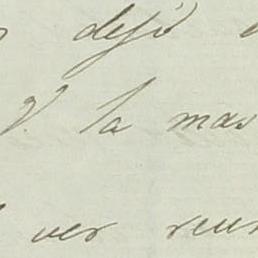 dejó
V. la mas
ver reun